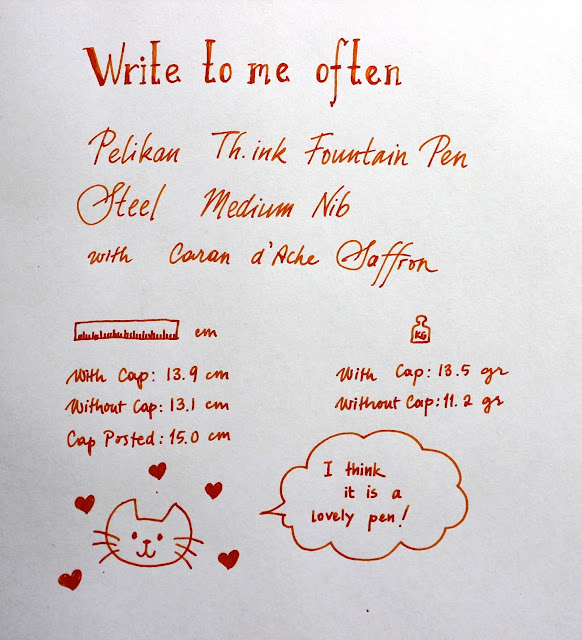 Write to me often
Pelikan Th.ink Fountain Pen
Steel Medium Nib
with Caran d'Ache Saffron
cm
With Cap: 13.9 cm
Without Cap: 13.1 cm
Cap Posted: 15.0 cm
KG
With Cap: 13.5 gr
Without Cap: 11.2 gr
I think
it is a
lovely pen!